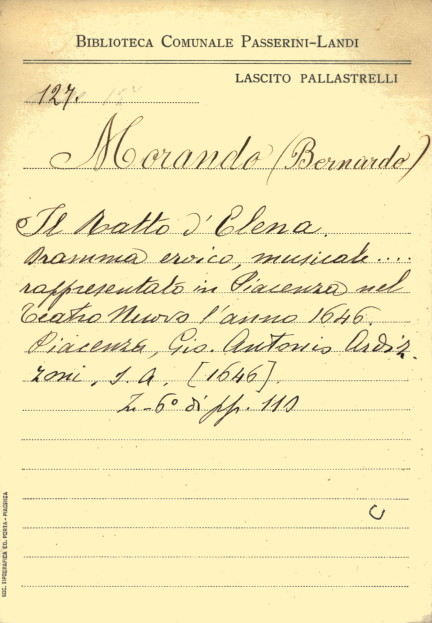 BIBLIOTECA COMUNALE PASSERINI-LANDI
LASCITO PALLASTRELLI
127.
Morando (Bernardo)
Il Ratto d'Elena.
Dramma eroico, musicale....
rappresentato in Piacenza nel
Teatro Nuovo l'anno 1646.
Piacenza, Gio. Antonio Ardiz-
zoni, s. a. [1646].
di pp. 110
C
SOC. TIPOGRAFICA ED. PORTA - PIACENZA